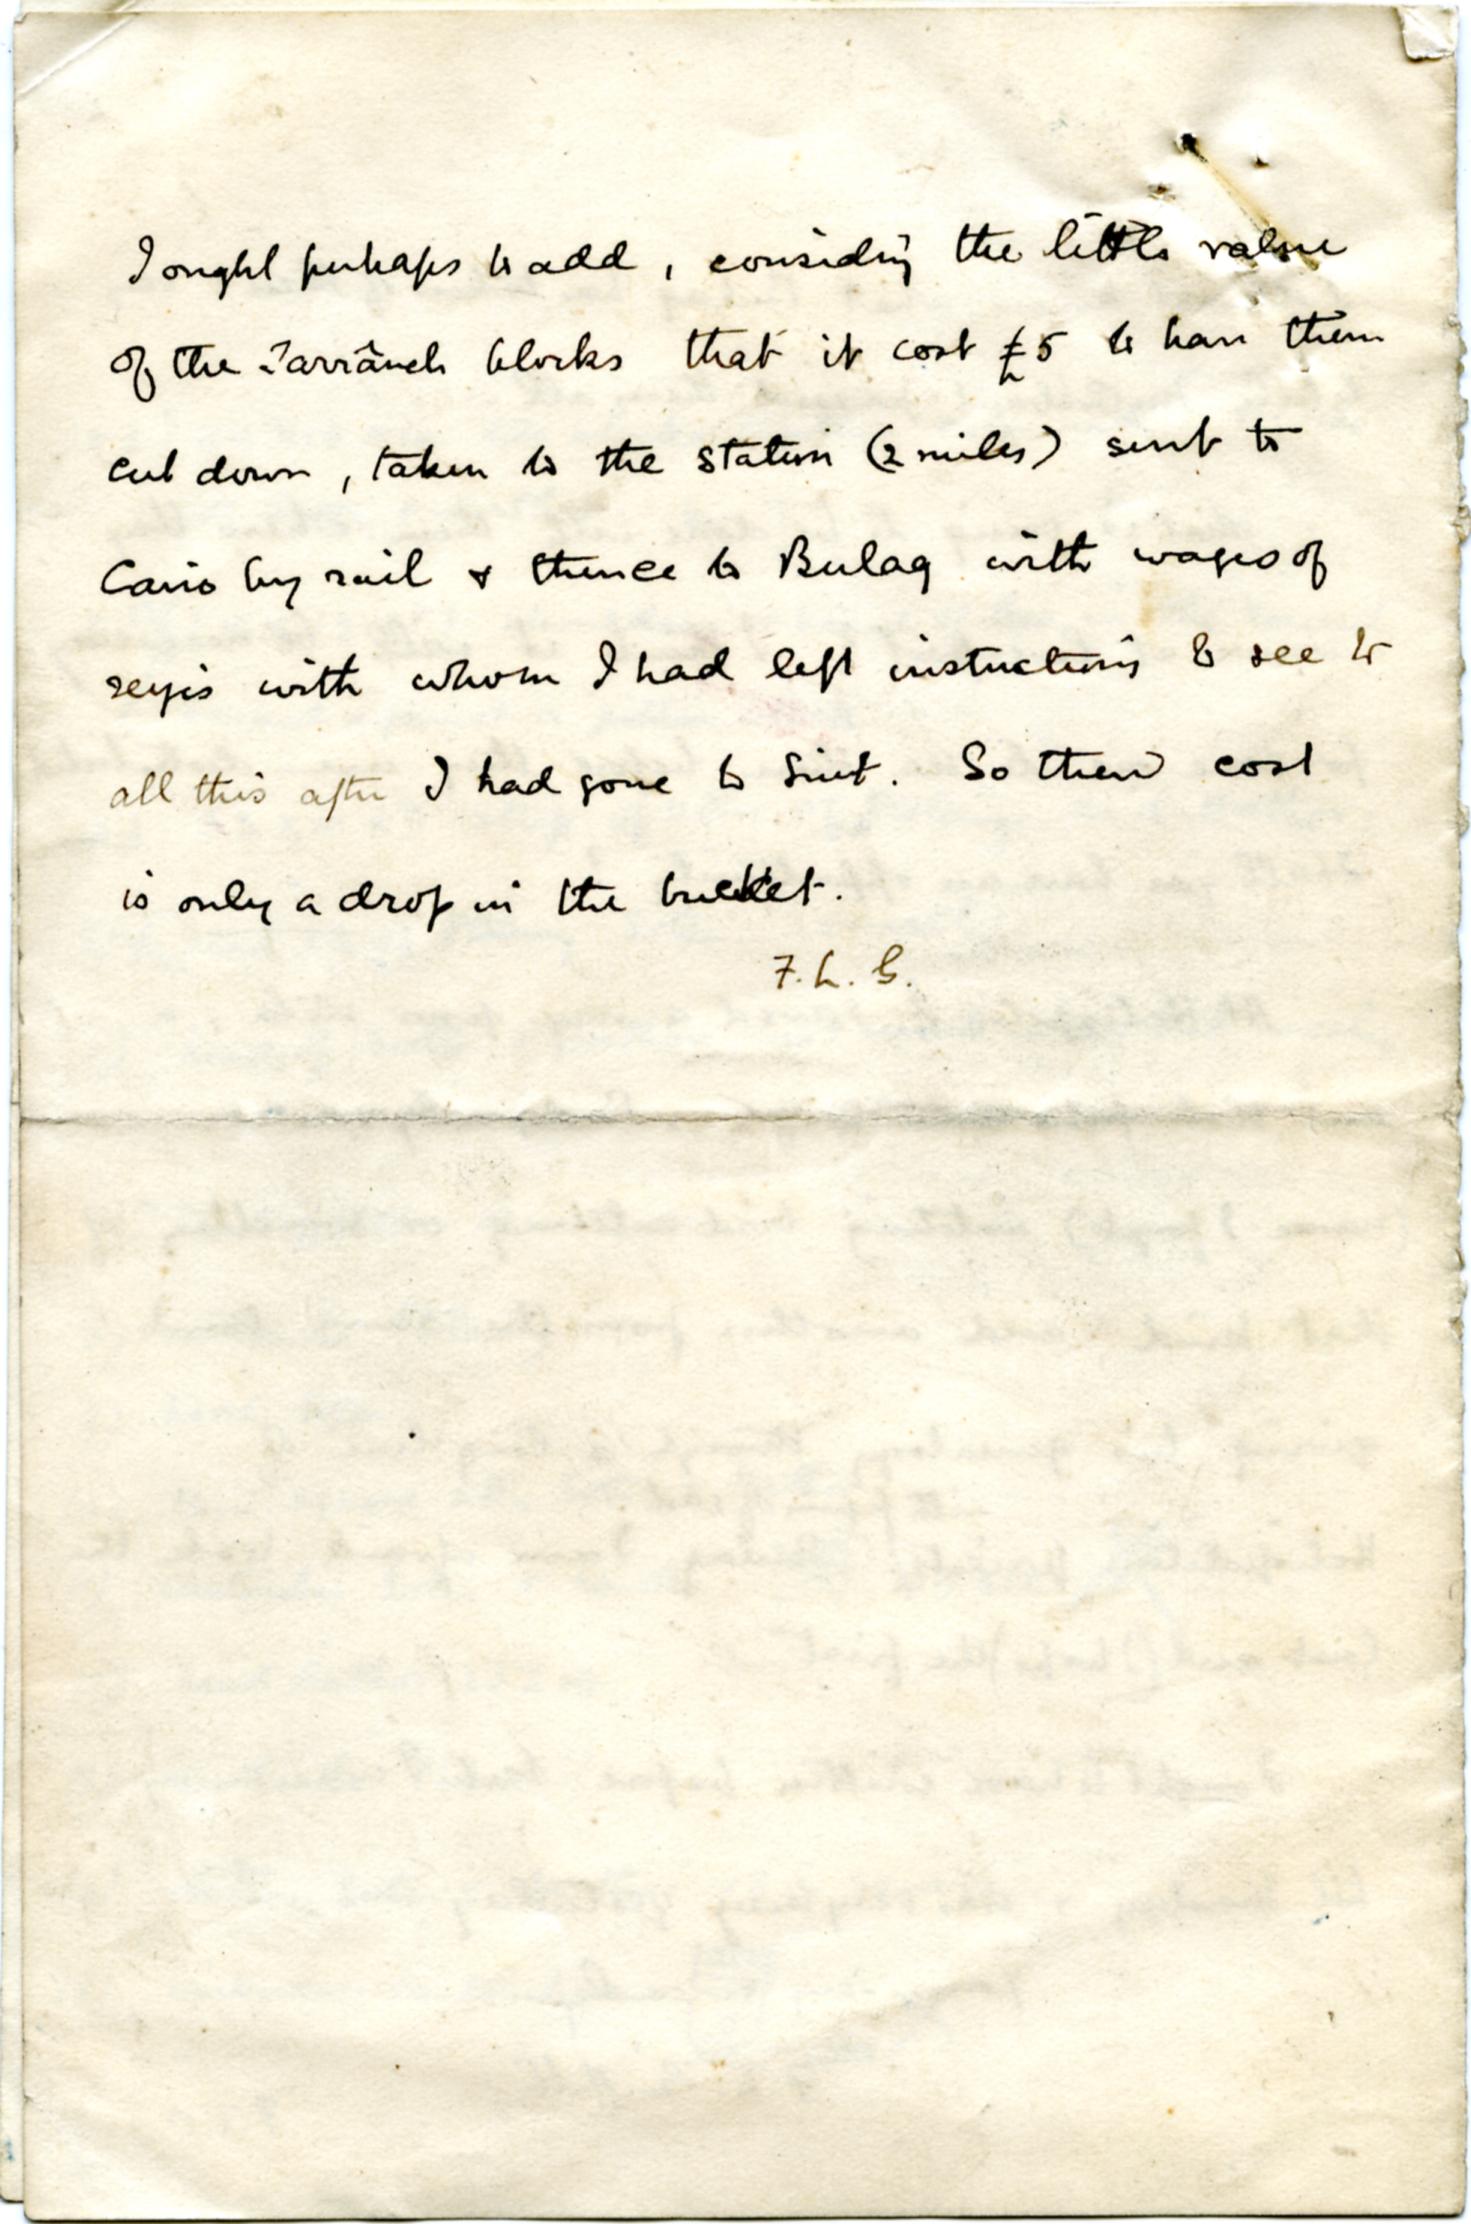 I ought perhaps to add, considring the little value
of the Tarrâneh blocks that it cost £5 to have them
cut down, taken to the station (2 miles) sent to
Cairo by rail & thence to Bulaq with wages of
reyis with whom I had left instructions to see to
all this after I had gone to Siut. So their cost
is only a drop in the bucket.
F. L. G.